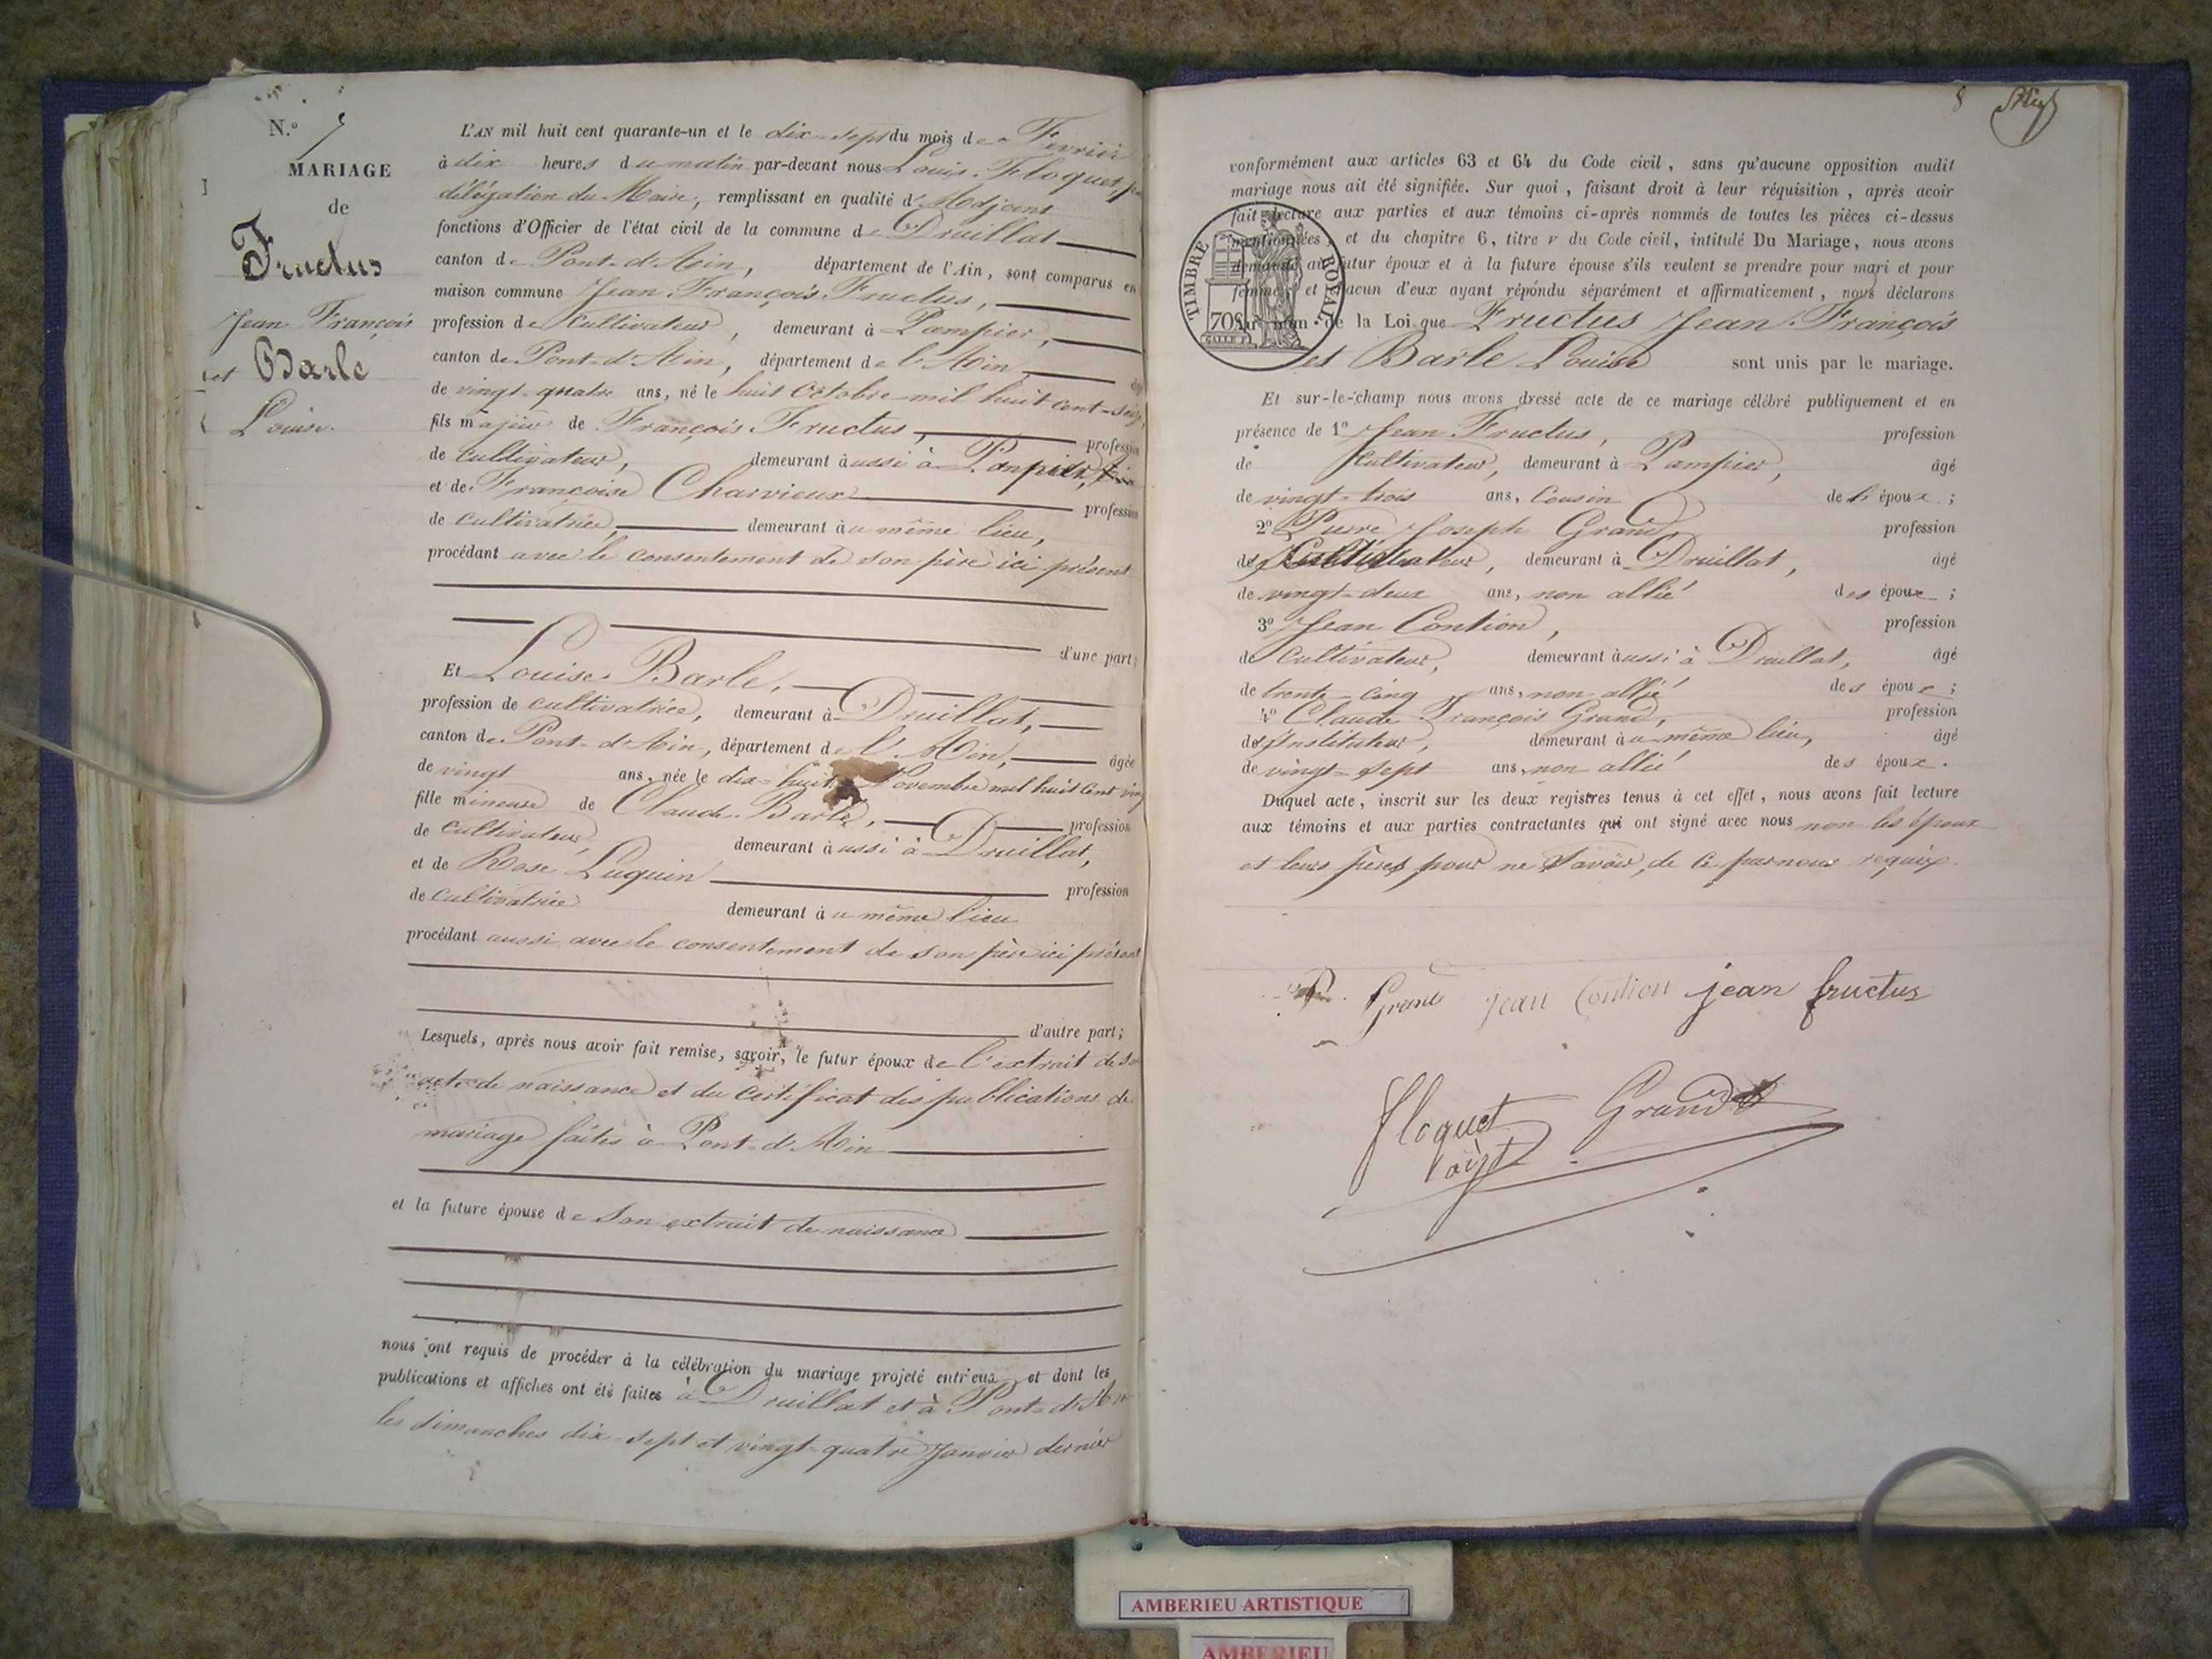 N.o 7
MARIAGE
de
Fructus
Jean François
et Barle
Louise.
L'AN mil huit cent quarante-un et le dix-sept du mois de Février
à dix heures du matin par-devant nous Louis Floquet, par
délégation du Maire, remplissant en qualité d'Adjoint
fonctions d'Officier de l'état civil de la commune de Druillat
canton de Pont-d'Ain, département de l'Ain, sont comparus en
maison commune Jean François Fructus,
profession de Cultivateur, demeurant à Pampier,
canton de Pont-d'Ain, département de l'Ain
de vingt-quatre ans, né le huit Octobre mil huit cent-seize,
fils majeur de François Fructus, profession
de cultivateur, demeurant à aussi à Pampier,
et de Françoise Charvieux profession
de cultivatrice, demeurant à u même lieu,
procédant avec le consentement de son père ici présent
d'une part;
Et Louise Barle,
profession de cultivatrice, demeurant à Druillat,
canton de Pont-d'Ain, département de l'Ain, âgée
de vingt ans, née le dix-huit Novembre mil huit cent vingt
fille mineure de Claude Barle, profession
de cultivateur, demeurant à aussi à Druillat,
et de Rose Luquin profession
de cultivatrice demeurant à u même lieu
procédant aussi avec le consentement de son père ici présent
d'autre part;
Lesquels, après nous avoir fait remise, savoir, le futur époux de l'extrait de son
acte de naissance et du certificat des publications de
mariage faites à Pont-d'Ain
et la future épouse de son extrait de naissance
nous ont requis de procéder à la célébration du mariage projeté entr'eux, et dont les
publications et affiches ont été faites à Druillat et à Pont-d'Ain
les dimanches dix-sept et vingt-quatre Janvier dernier
8
conformément aux articles 63 et 64 du Code civil, sans qu'aucune opposition audit
mariage nous ait été signifiée. Sur quoi, faisant droit à leur réquisition, après avoir
fait lecture aux parties et aux témoins ci-après nommés de toutes les pièces ci-dessus
mentionnées, et du chapitre 6, titre v du Code civil, intitulé Du Mariage, nous avons
demandé au futur époux et à la future épouse s'ils veulent se prendre pour mari et pour
femme; et chacun d'eux ayant répondu séparément et affirmativement, nous déclarons
au nom de la Loi que Fructus Jean François
et Barle Louise sont unis par le mariage.
TIMBRE ROYAL.
70c
Et sur-le-champ nous avons dressé acte de ce mariage célébré publiquement et en
présence de 1o Jean Fructus, profession
de Cultivateur, demeurant à Pampier, âgé
de vingt-trois ans, Cousin de l'époux;
2o Pierre Joseph Grand profession
de Cultivateur, demeurant à Druillat, âgé
de vingt-deux ans, non allié des époux;
3o Jean Contion, profession
de Cultivateur, demeurant à aussi à Druillat, âgé
de trente-cinq ans, non allié des époux;
4o Claude François Grand, profession
d'Instituteur, demeurant à u même lieu, âgé
de vingt-sept ans, non allié des époux.
Duquel acte, inscrit sur les deux registres tenus à cet effet, nous avons fait lecture
aux témoins et aux parties contractantes qui ont signé avec nous non les époux
et leurs pères pour ne savoir, de ce par nous requis.
P. Grand jean Contion jean fructus
floquet Grand
adjt
AMBERIEU ARTISTIQUE
AMBERIEU